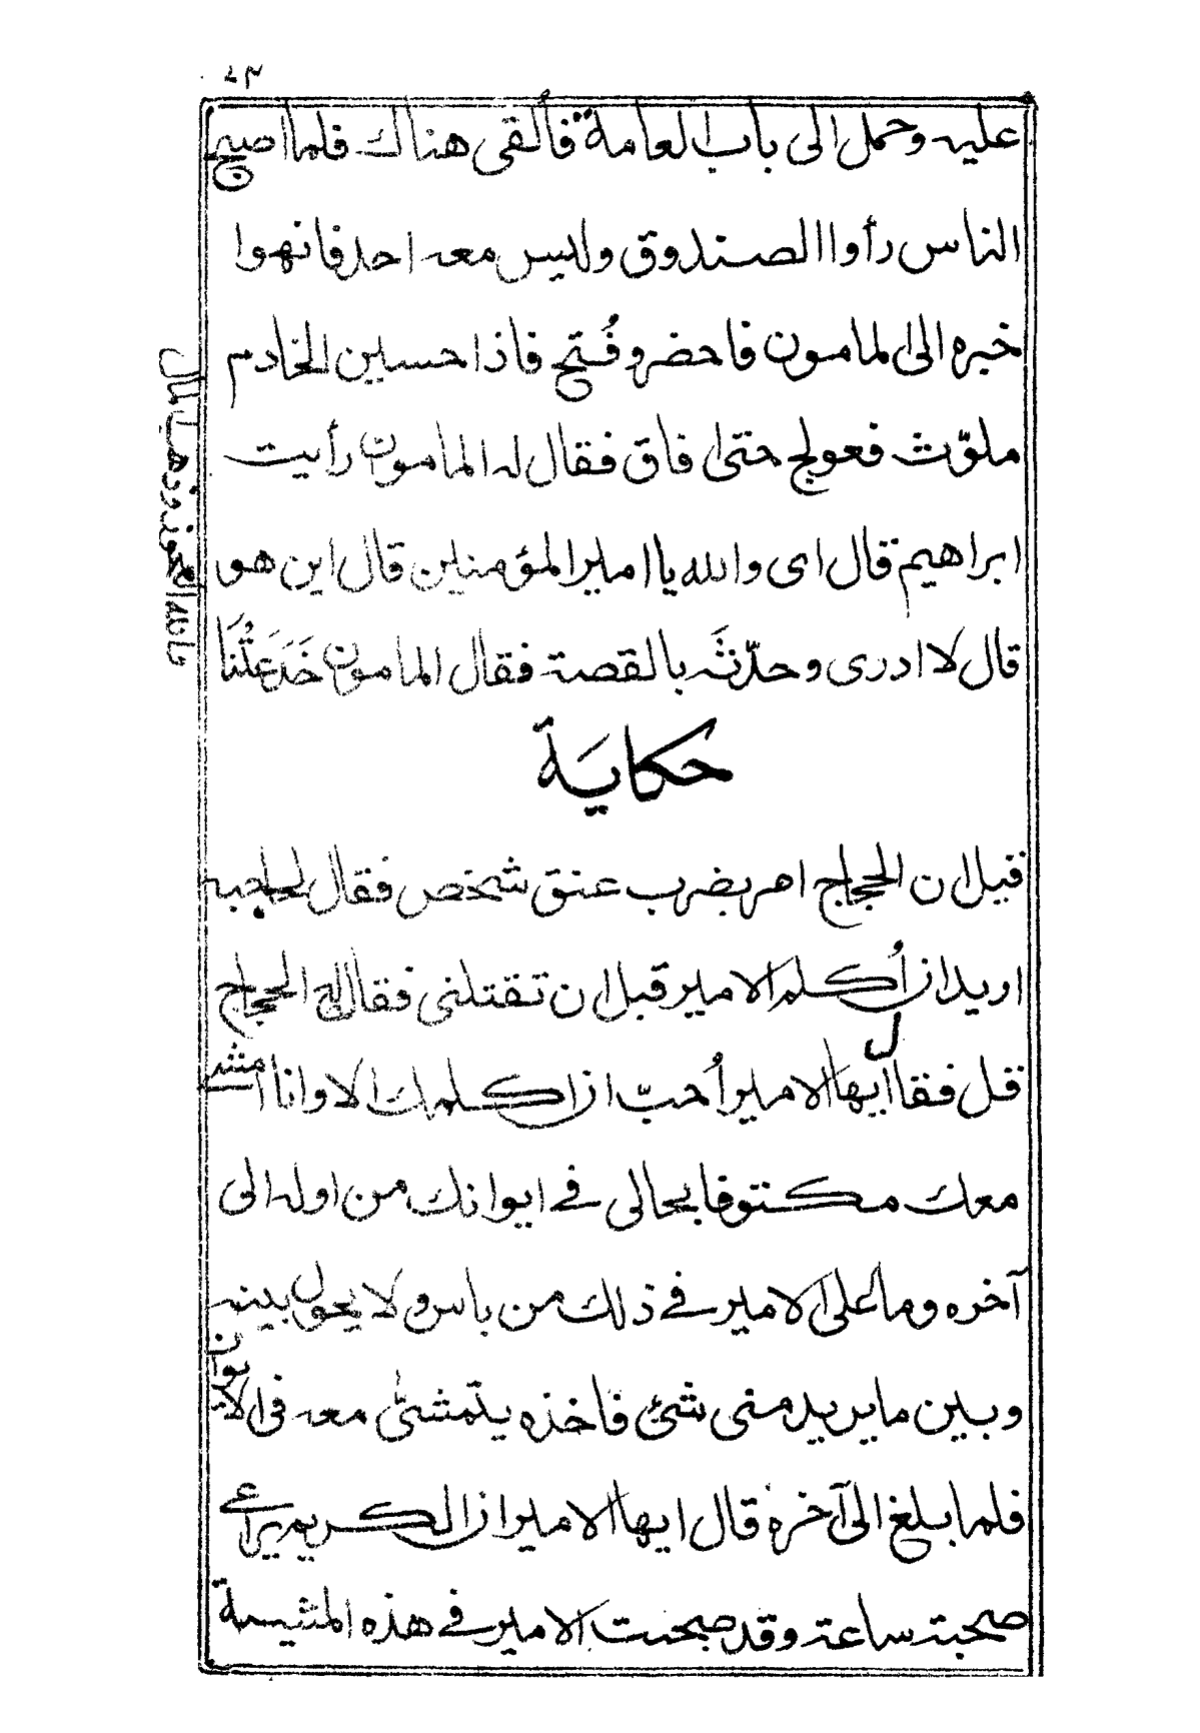 ٢٣
عليه وحمل الى باب العامة فألقى هناك فلما اصبح
الناس رأوا الصندوق وليس معه احد فانهوا
خبره الى لمامون فاحضر وفُتح فاذا حسين الخادم
ملوّث فعولج حتى افاق فقال له المامون رأيت
ابراهيم قال اى والله يا امير المؤمنين قال اين هو
قال لا ادرى وحدّثَه بالقصة فقال المامون خَدَعَتْنَا
والله العجوز وذهب المال
حكايَة
قيل ان الحجاج امر بضرب عنق شخص فقال لحاجبه
اريد ان أُكلم الامير قبل ان تقتلنى فقال له الحجاج
قل فقال أيها الامير أُحبّ ان اكلمك الا وانا امشى
معك مكتوفا بحالى في ايوانك من اوله الى
آخره وما على الامير في ذلك من باس ولا يحول بينه
وبين ما يريد منى شئ فاخذه يتمشىّ معه فى الايوان
فلما بلغ الى آخره قال ايها الامير ان الكريم يراعى
صحبة ساعة وقد صحبت الامير في هذه المشيسة